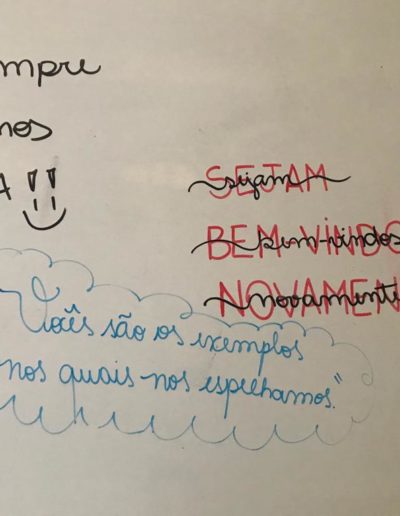 mpre
mos
A !!
SEJAM
sejam
BEM-VINDO
bem-vindos
NOVAMEN
novamente
Vocês são os exemplos
nos quais nos espelhamos."